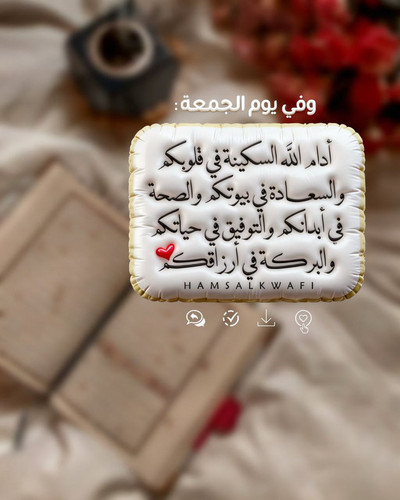 وفي يوم الجمعة :
أدام الله السكينة في قلوبكم
والسعادة في بيوتكم والصحة
في أبدانكم والتوفيق في حياتكم
والبركة في أرزاقكم
HAMSALKWAFI